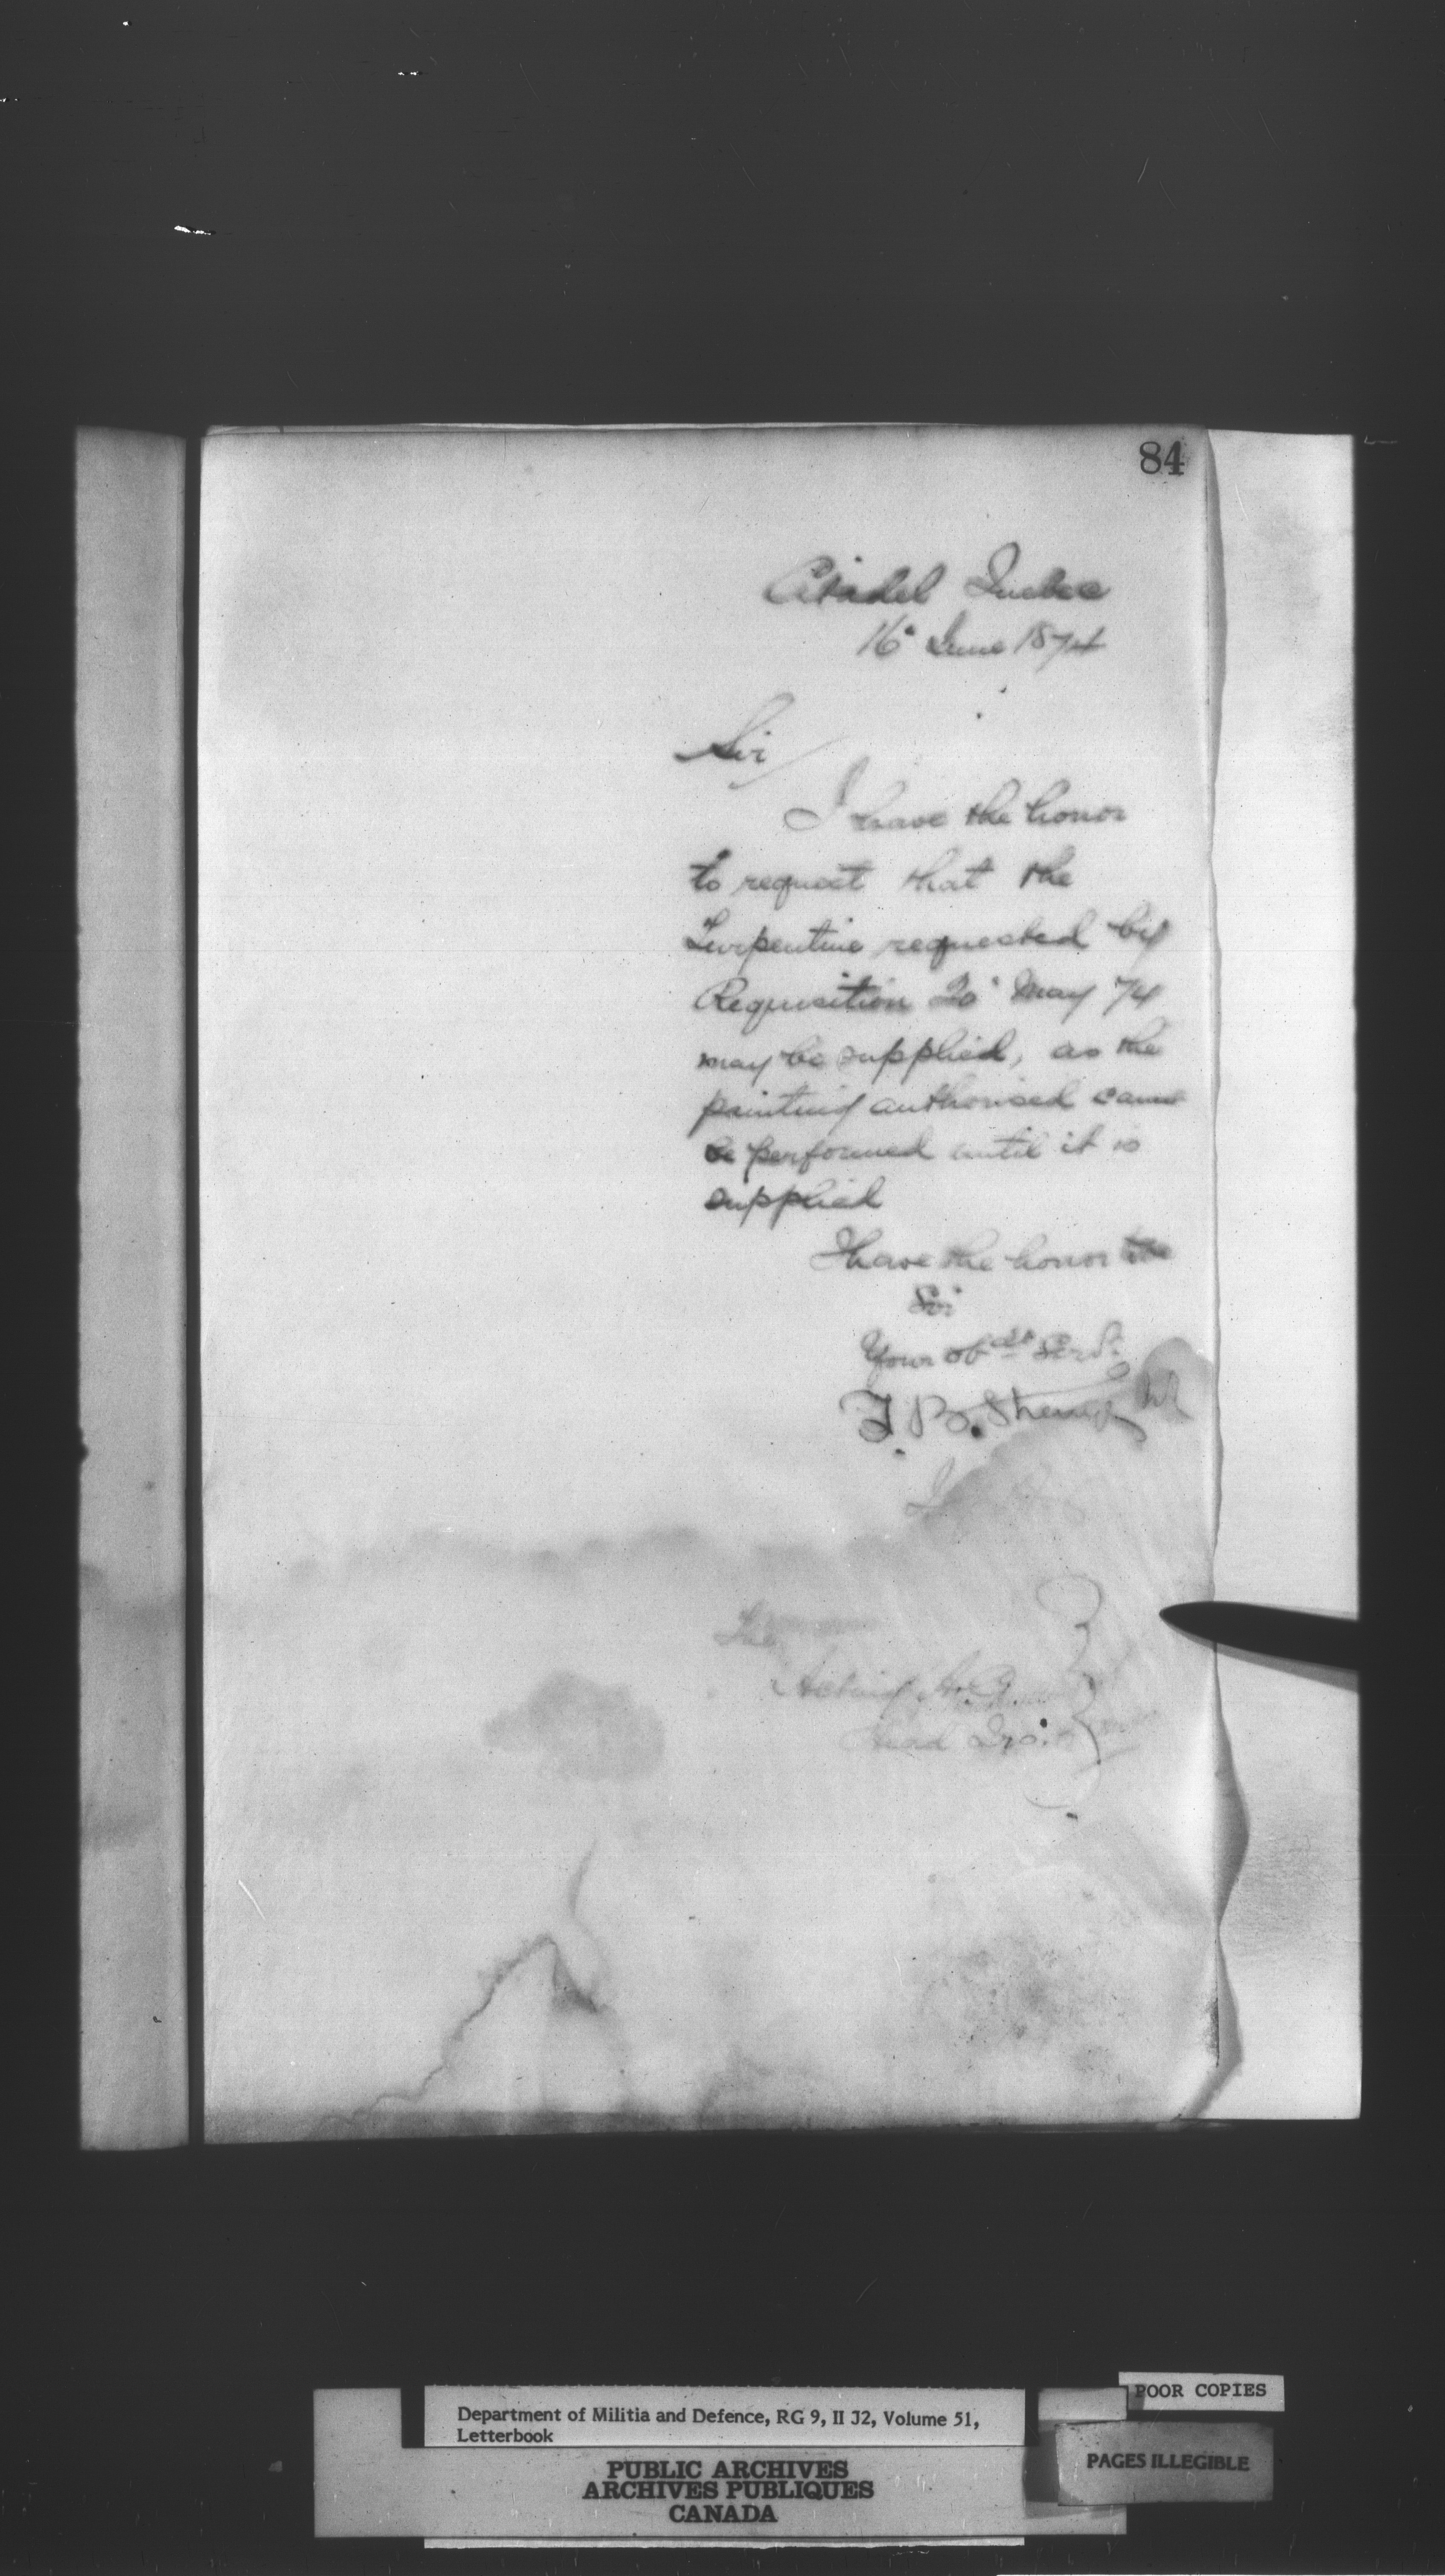 84
Citadel Quebec
16 June 1874
Sir
I have the honor
to request that the
Turpentine requested by
Requisition 20 May 74
may be supplied, as the
painting authorised cannot
be performed until it is
supplied
I have the honor to be
Sir
Your obdt Servt
T. B. Strange
The
Acting
Head Qrs.
POOR COPIES
Department of Militia and Defence, RG 9, II J2, Volume 51,
Letterbook
PAGES ILLEGIBLE
PUBLIC ARCHIVES
ARCHIVES PUBLIQUES
CANADA